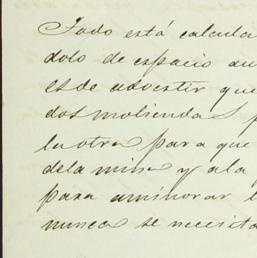 Todo está calcula
dolo de espacio au
es de advertir que
dos moliendas p
la otra para que
de la mina y a la p
para aminorar l
nunca se necesita